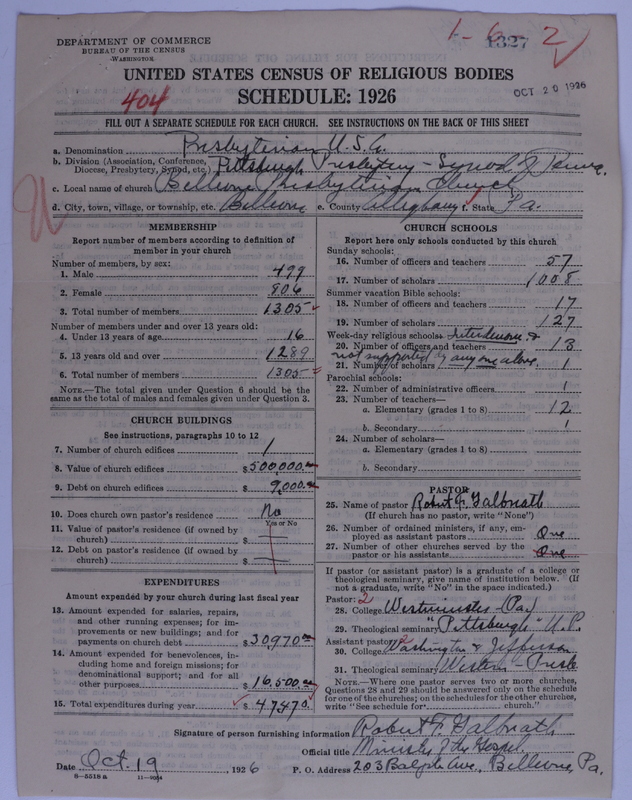 1-6-2
1327
DEPARTMENT OF COMMERCE
BUREAU OF THE CENSUS
WASHINGTON
UNITED STATES CENSUS OF RELIGIOUS BODIES
SCHEDULE: 1926
OCT 20 1926
404
FILL OUT A SEPARATE SCHEDULE FOR EACH CHURCH. SEE INSTRUCTIONS ON THE BACK OF THIS SHEET
a. Denomination Presbyterian U.S.A.
b. Division (Association, Conference, Diocese, Presbytery, Synod, etc.) Pittsburgh Presbytery - Synod of Penna.
c. Local name of church Bellevue Presbyterian Church
d. City, town, village, or township, etc. Bellevue e. County Allegheny f. State Pa.
MEMBERSHIP
Report number of members according to definition of
member in your church
Number of members, by sex:
1. Male 499
2. Female 806
3. Total number of members 1305
Number of members under and over 13 years old:
4. Under 13 years of age 16
5. 13 years old and over 1289
6. Total number of members 1305
NOTE.—The total given under Question 6 should be the
same as the total of males and females given under Question 3.
CHURCH BUILDINGS
See instructions, paragraphs 10 to 12
7. Number of church edifices 1
8. Value of church edifices $500,000.00
9. Debt on church edifices $9,000.00
10. Does church own pastor's residence No
Yes or No
11. Value of pastor's residence (if owned by
church) $
12. Debt on pastor's residence (if owned by
church) $
EXPENDITURES
Amount expended by your church during last fiscal year
13. Amount expended for salaries, repairs,
and other running expenses; for im-
provements or new buildings; and for
payments on church debt $30970.00
14. Amount expended for benevolences, in-
cluding home and foreign missions; for
denominational support; and for all
other purposes $16,500.00
15. Total expenditures during year $47470.
CHURCH SCHOOLS
Report here only schools conducted by this church
Sunday schools:
16. Number of officers and teachers 57
17. Number of scholars 1008
Summer vacation Bible schools:
18. Number of officers and teachers 17
19. Number of scholars 127
Week-day religious schools: Interdenom. &
20. Number of officers and teachers 13
not supported by any one alone.
21. Number of scholars 1
Parochial schools:
22. Number of administrative officers 1
23. Number of teachers—
a. Elementary (grades 1 to 8) 12
b. Secondary 1
24. Number of scholars—
a. Elementary (grades 1 to 8)
b. Secondary
PASTOR
25. Name of pastor Robert F. Galbreath
(If church has no pastor, write "None")
26. Number of ordained ministers, if any, em-
ployed as assistant pastors One
27. Number of other churches served by the
pastor or his assistants One
If pastor (or assistant pastor) is a graduate of college or
theological seminary, give name of institution below. (If
not a graduate, write "No" in the space indicated.)
Pastor: 2
28. College Westminster - Pa.
29. Theological seminary "Pittsburgh" U.P.
Assistant pastor: 2
30. College Washington & Jefferson
31. Theological seminary Western - Presb.
NOTE.—Where one pastor serves two or more churches,
Questions 28 and 29 should be answered only on the schedule
for one of the churches; on the schedules for the other churches,
write "See schedule for church."
Signature of person furnishing information Robert F. Galbreath
Official title Minister of the Gospel.
Date Oct. 19, 1926 P. O. Address 203 Balph Ave., Bellevue, Pa.
8—5518a 11—9054